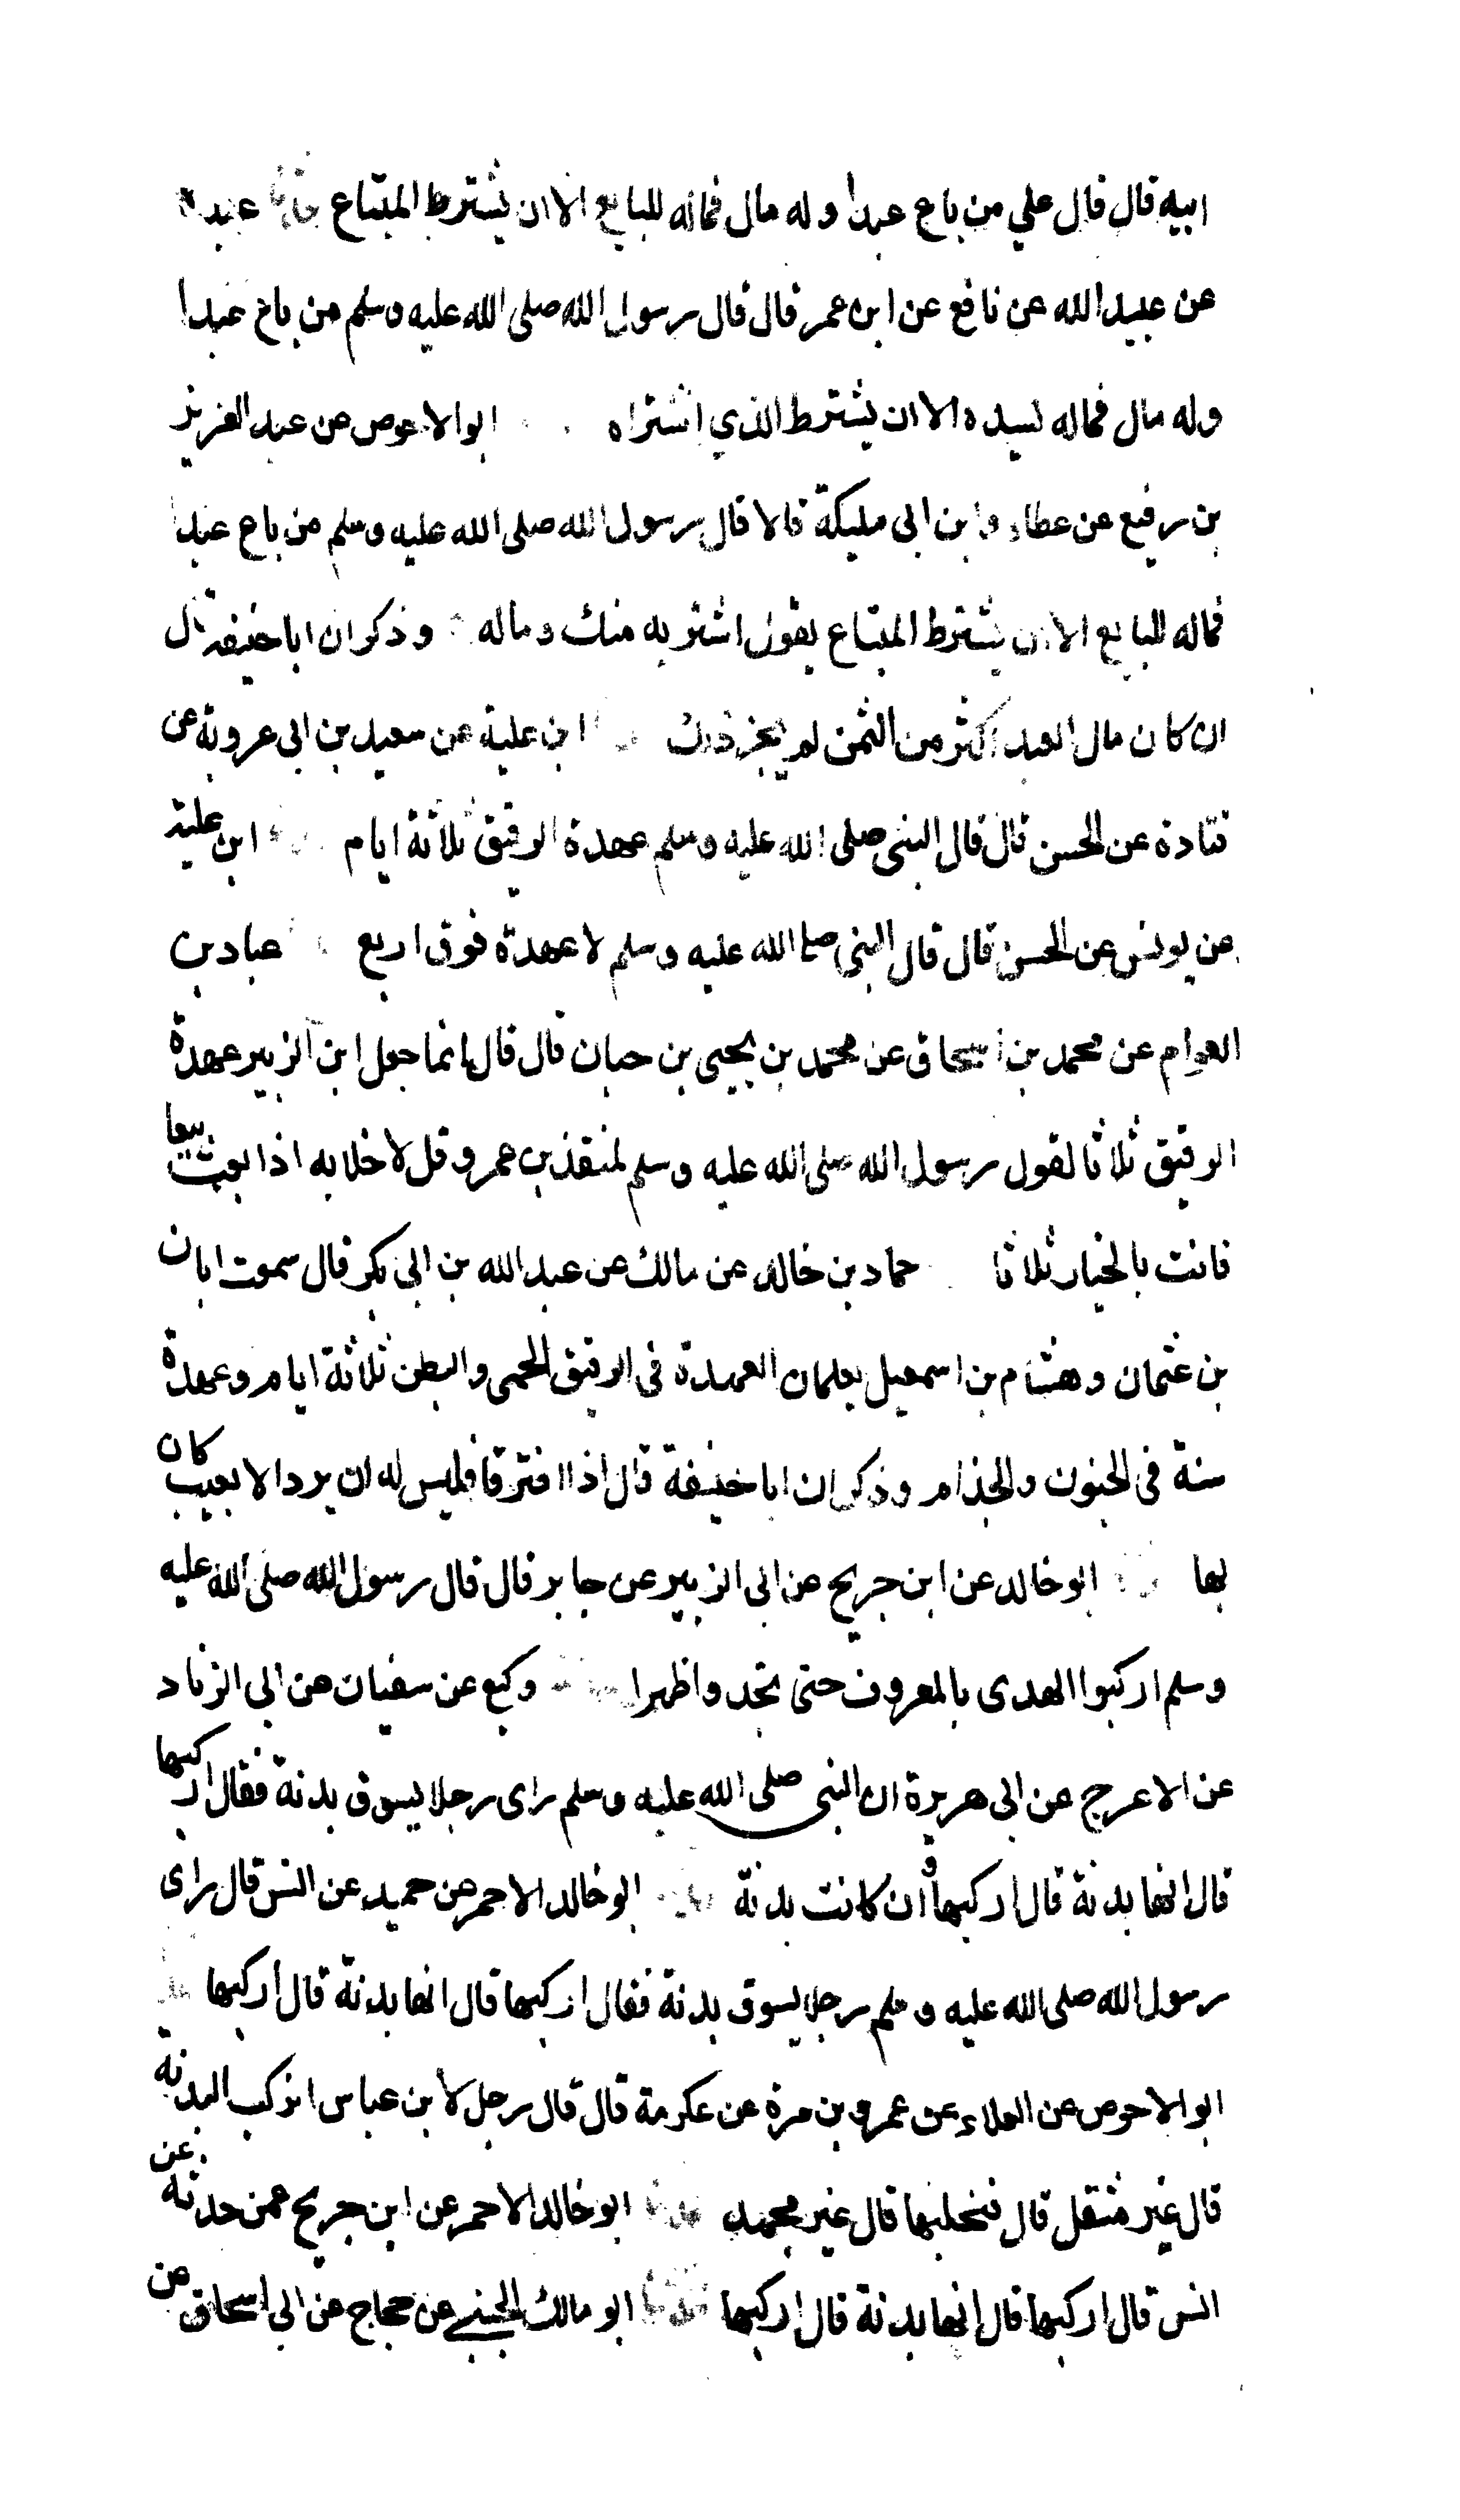 ابيه قال قال علي من باع عبدا وله مال فماله للبايع الا ان يشترط المبتاع حدثنا عبدة
عن عبيد الله عن نافع عن ابن عمر قال قال رسول الله صلى الله عليه وسلم من باع عبدا
وله مال فماله لسيده الا ان يشترط الذي اشتراه ابو الاحوص عن عبد العزيز
بن رفيع عن عطاء وابن ابى مليكة قالا قال رسول الله صلى الله عليه وسلم من باع عبدا
فماله للبايع الا ان يشترط المبتاع يقول اشتريه منك وماله وذكر ان ابا حنيفة قال
ان كان مال العبد اكثر من الثمن لم يجز ذلك ابن علية عن سعيد بن ابى عروبة عن
قتادة عن الحسن قال قال النبى صلى الله عليه وسلم عهدة الرقيق ثلاثة ايام ابن علية
عن يونس عن الحسن قال قال النبي صلى الله عليه وسلم لا عهدة فوق اربع عباد بن
العوام عن محمد بن اسحاق عن محمد بن يحيى بن حبان قال قال انما جعل ابن الزبير عهدة
الرقيق ثلاثا لقول رسول الله صلى الله عليه وسلم لمنقذ بن عمرو قل لا خلابه اذا بعت بيعا
فانت بالخيار ثلاثا حماد بن خالد عن مالك عن عبد الله بن ابى بكر قال سمعت ابان
بن عثمان وهشام بن اسمعيل يعلمان العهدة فى الرقيق الحمى والبطن ثلاثة ايام وعهدة
سنة فى الجنون والجذام وذكر ان ابا حنيفة قال اذا افترقا فليس له ان يرد الا بعيب كان
بها ابو خالد عن ابن جريج عن ابى الزبير عن جابر قال قال رسول الله صلى الله عليه
وسلم اركبوا الهدى بالمعروف حتى تجدوا ظهرا وكيع عن سفيان عن ابى الزناد
عن الاعرج عن ابى هريرة ان النبى صلى الله عليه وسلم راى رجلا يسوق بدنة فقال اركبها
قال انها بدنة قال اركبها وان كانت بدنة ابو خالد الاحمر عن حميد عن انس قال راى
رسول الله صلى الله عليه وسلم رجلا يسوق بدنة فقال اركبها قال انها بدنة قال اركبها
ابو الاحوص عن العلاء عن عمرو بن مرة عن عكرمة قال قال رجل لابن عباس انركب البدنة
قال غير مثقل قال فنحلبها قال غير مجهد حدثنا ابو خالد الاحمر عن ابن جريج عمن حدثه عن
انس قال اركبها قال انها بدنة قال اركبها حدثنا ابو مالك الجنبي عن حجاج عن ابى اسحاق عن